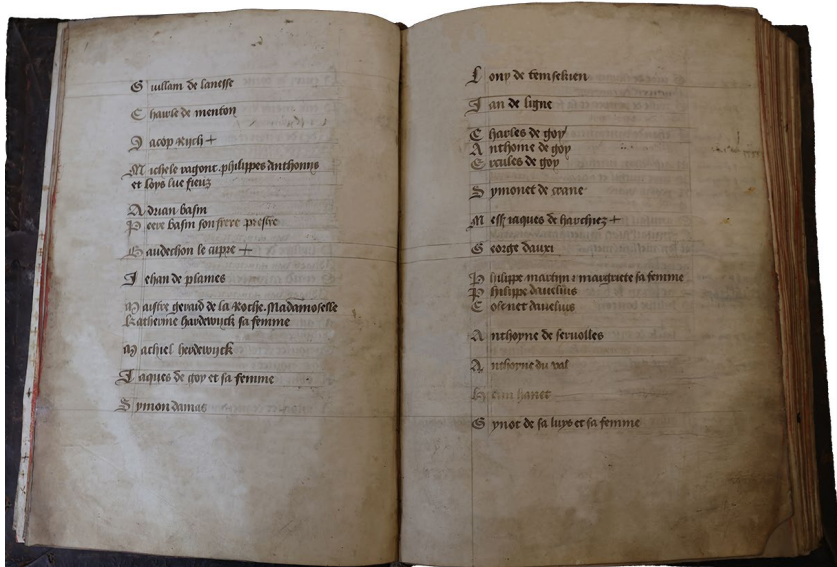 Guillam de lanesse
Charle de menton
Jacop Rych +
Michele vagont. philippes Anthonis
et loys sue fieuz
Adrian basin
Peere basin son frere prestre
Gaudechon le cupre +
Jehan de plames
Maistre geraid de la Roche. Madamoselle
Katherine herdewyck sa femme
Machiel herdewyck
Jaques de goy et sa femme
Symon damas
Lony de temsekien
Jan de ligne
Charles de goy
Anthonie de goy
Ercules de goy
Symonet de crane
Mess jaques de harchiez +
George dauxi
Philippe martijn margriete sa femme
Philippe davelius
Cosenet davelius
Anthoyne de servolles
Anthoyne du val
hanet
Gynot de sa luys et sa femme